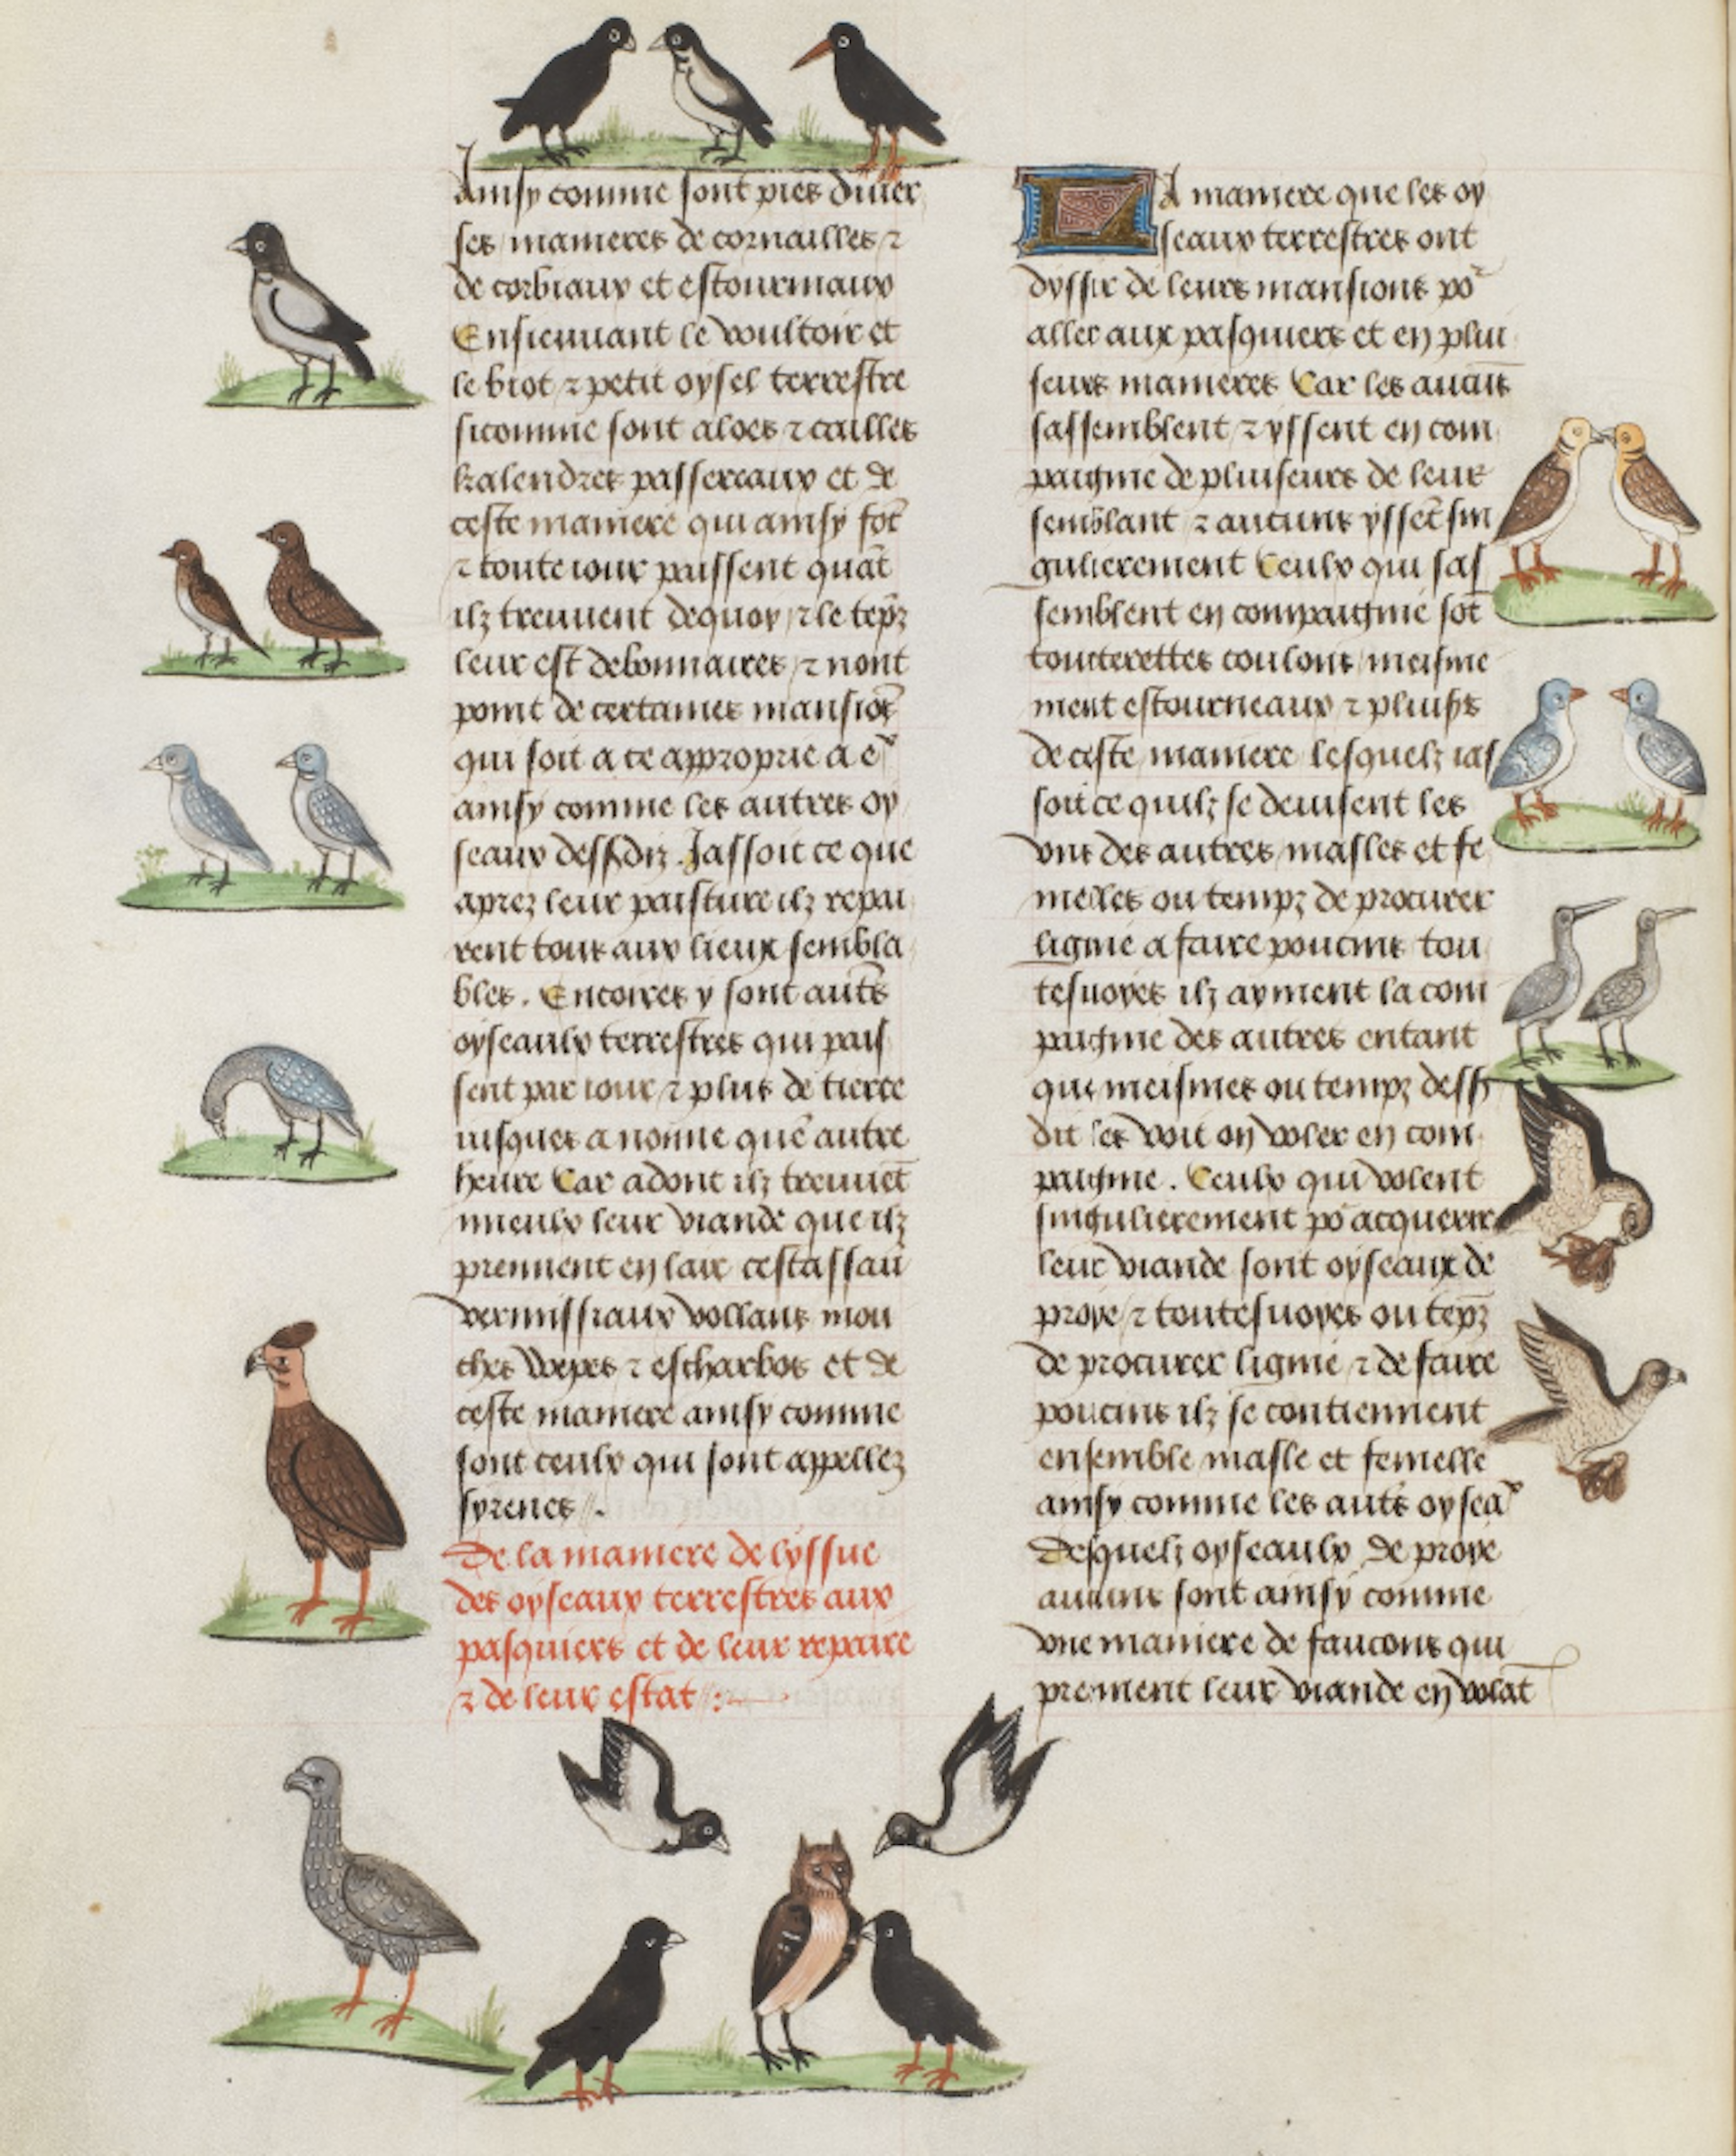 Ainsy comme sont pies diuer
ses manieres de cornailles ⁊
de corbiaux et estourniaux
Ensieuuant le voultoir et
le biot ⁊ petit oysel terrestre
sicomme sont aloes ⁊ cailles
kalendres passereaux et de
ceste maniere qui ainsy fōt
⁊ toute iour paissent quāt
ilz treuuent dequoy ⁊ le tēpz
leur est debonnaires ⁊ nont
point de certaines mansiōs
qui soit a ce approprie a
ainsy comme les autres oy
seaux dessdiz. Jassoit ce que
aprez leur paisture ilz repai
rent tous aux lieux sembla
bles. Encores y sont autēs
oyseaulx terrestres qui pais
sent par iour ⁊ plus de tierce
iusques a nonne que autre
heure Car adont ilz treuuēt
mieulx leur viande que ilz
prennent en lair cestassau
vermissiaux vollans mou
ches wepes ⁊ escharbos et de
ceste maniere ainsy comme
sont ceulx qui sont appellez
syrenes //.
De la maniere de lyssue
des oyseaux terrestres aux
pasquiers et de leur repaire
⁊ de leur estat :
LA maniere que les oy
seaux terrestres ont
dyssir de leurs mansions po
aller aux pasquiers et en plui
seurs manieres Car les aucūs
sassemblent ⁊ yssent en com
paignie de pluiseurs de leur
semblant ⁊ aucuns yssēt sin
gulierement Ceulx qui sas
semblent en compaignie sōt
tourterettes coulons meisme
ment estourneaux ⁊ pluiss
de ceste maniere lesquelz ias
soit ce quilz se deuisent les
vns des autres masles et fe
melles ou tempz de procurer
lignie a faire poucins tou
tesuoyes ilz ayment la com
paignie des autres entant
que meismes ou tempz dess
dit les voit on voler en com
paignie. Ceulx qui volent
singulierement po acquerir
leur viande sont oyseaux de
proye ⁊ toutesuoyes ou tēpz
de procurer lignie ⁊ de faire
poucins ilz se contiennent
ensemble masle et femelle
ainsy comme les autēs oysea
Desquelz oyseaulx de proye
aucuns sont ainsy comme
vne maniere de faucons qui
prennent leur viande en volāt